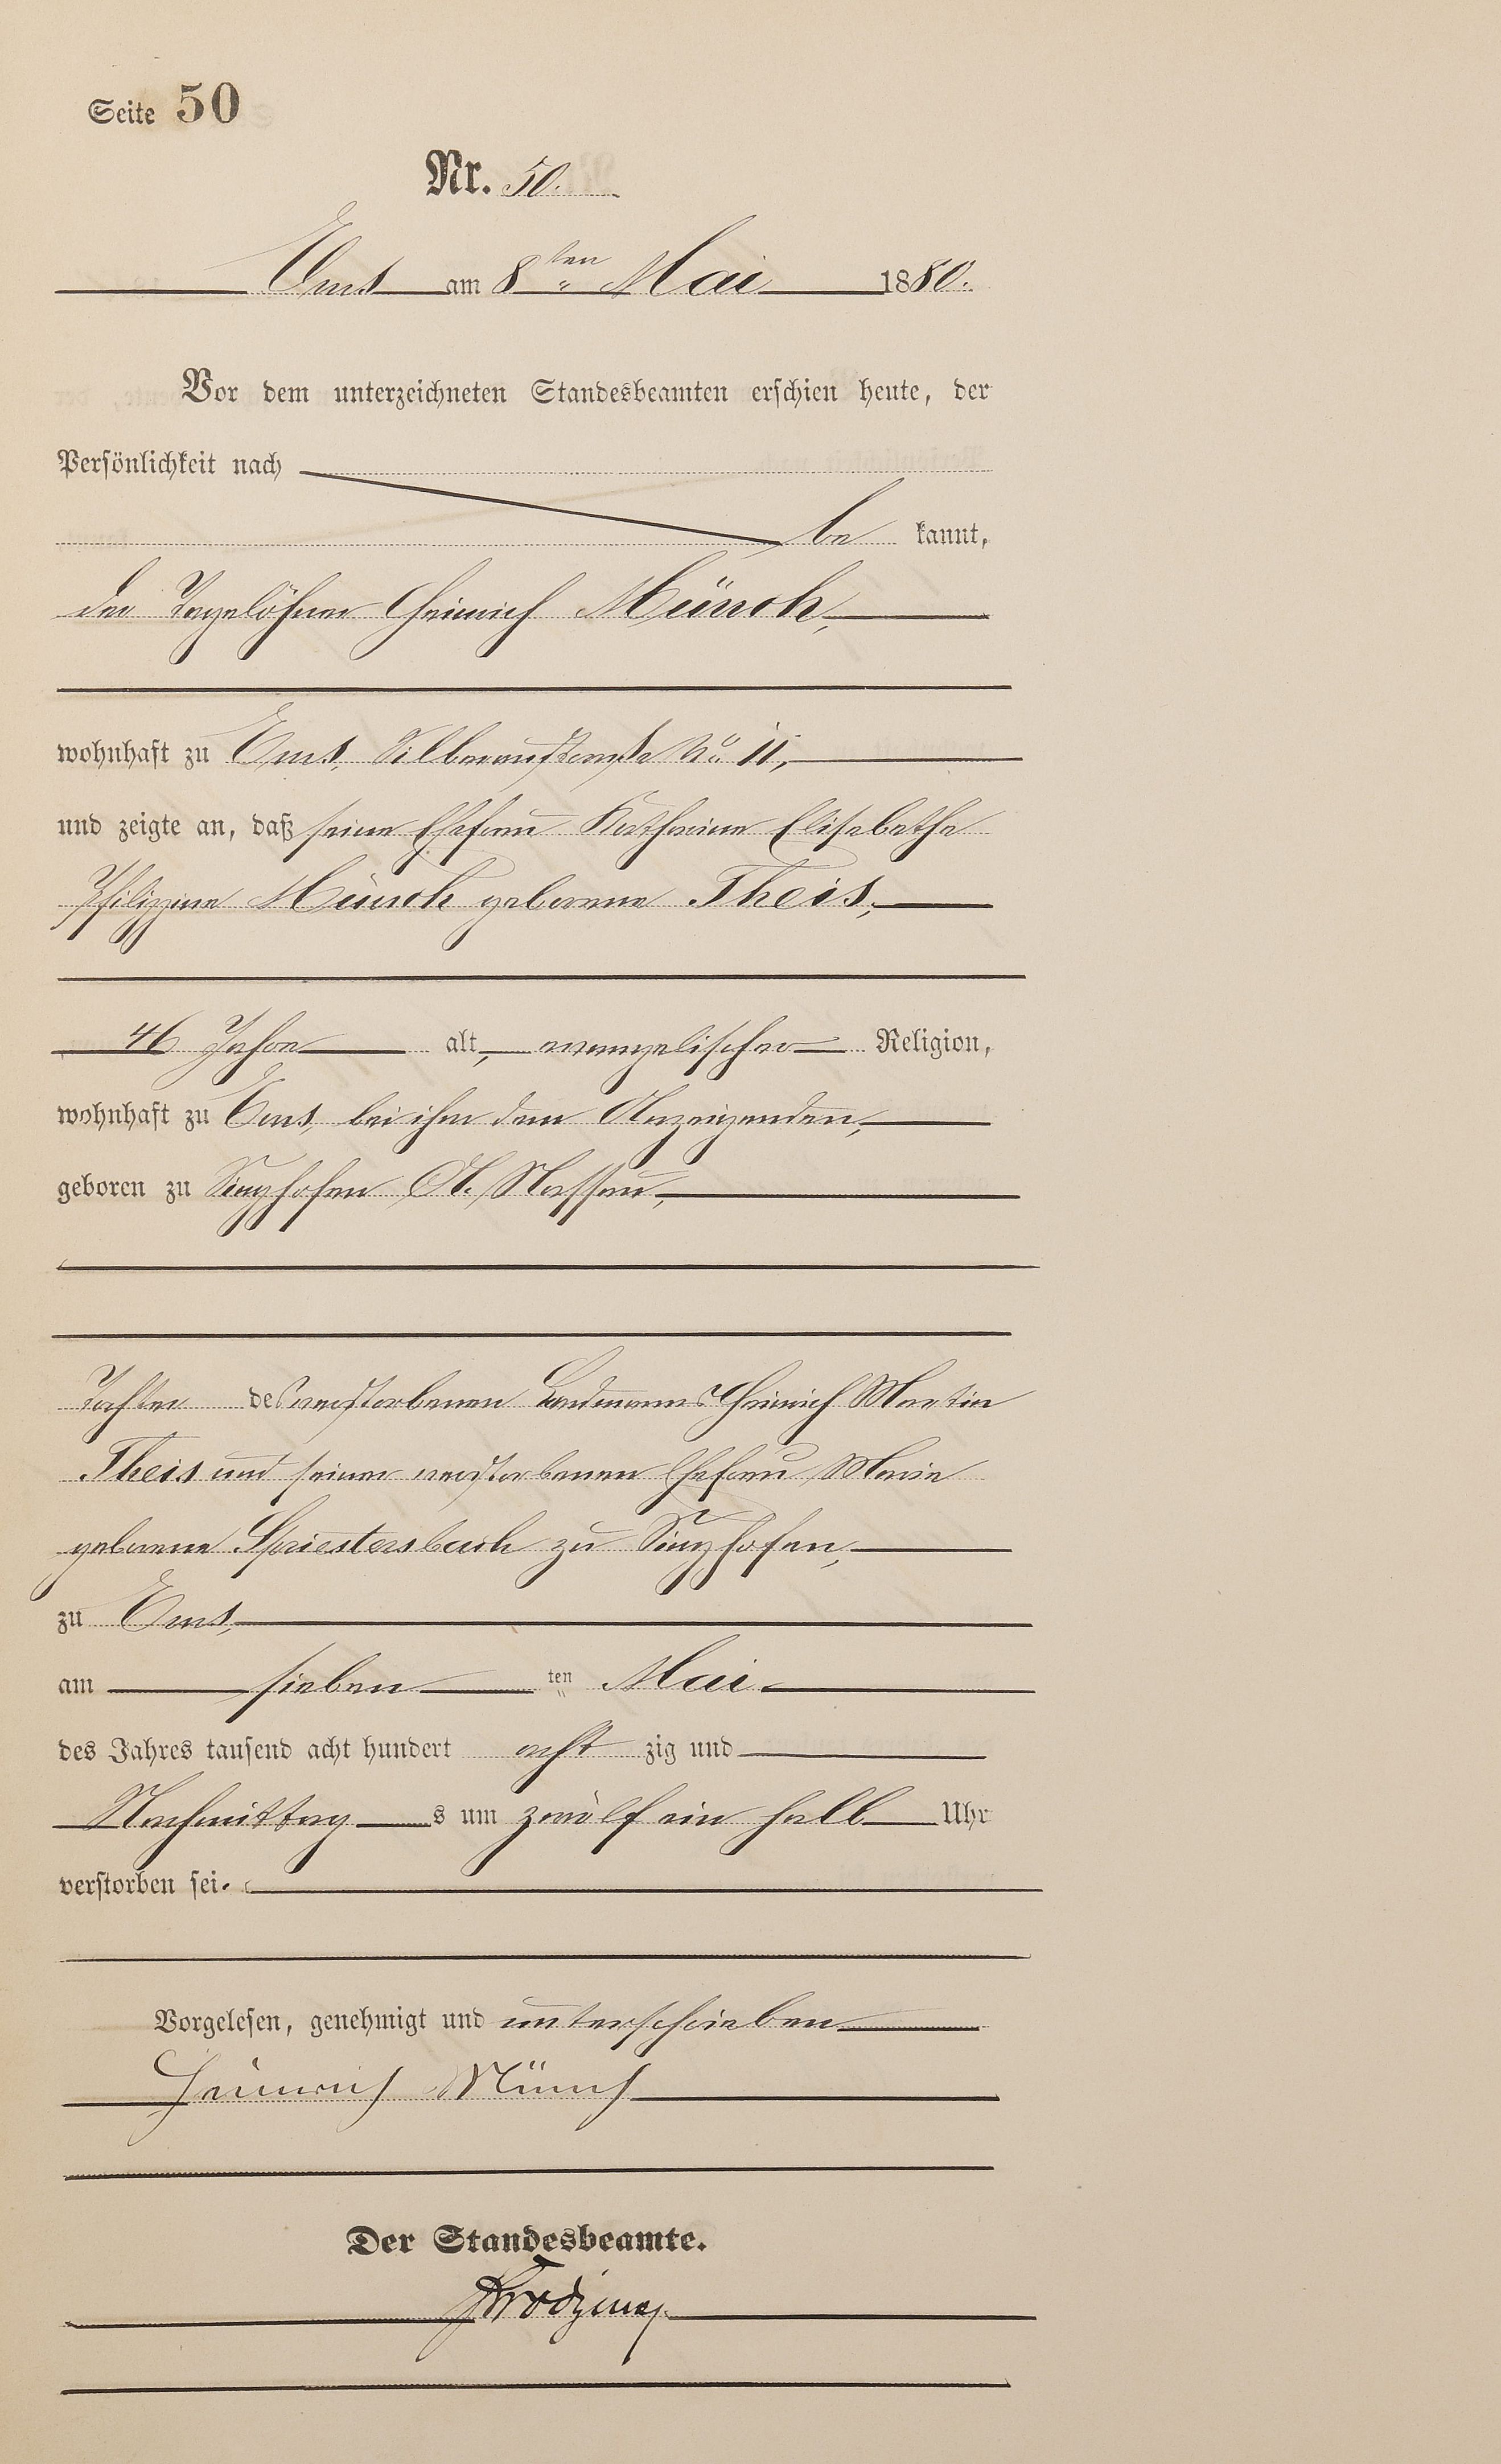 Seite 50
Nr. 50.
Ems am 8ten Mai 1880.
Vor dem unterzeichneten Standesbeamten erschien heute, der
Persönlichkeit nach
be kannt,
der Tagelöhner Heinrich Münch,
wohnhaft zu Ems, Silberaustraße No. 11,
und zeigte an, daß seine Ehefrau Katharine Elisabethe
Philippine Münch geborene Theis,
46 Jahre alt, evangelischer Religion,
wohnhaft zu Ems, bei ihm dem Anzeigenden,
geboren zu Singhofen A. Nassau,
Tochter des verstorbenen Landmanns Heinrich Martin
Theis und seiner verstorbenen Ehefrau Marie
geborene Spriestersbach zu Singhofen,
zu Ems,
am sieben ten Mai
des Jahres tausend acht hundert acht zig und
Nachmittag s um zwölf ein halb Uhr
verstorben sei.
Vorgelesen, genehmigt und unterschrieben
Heinrich Münch
Der Standesbeamte.